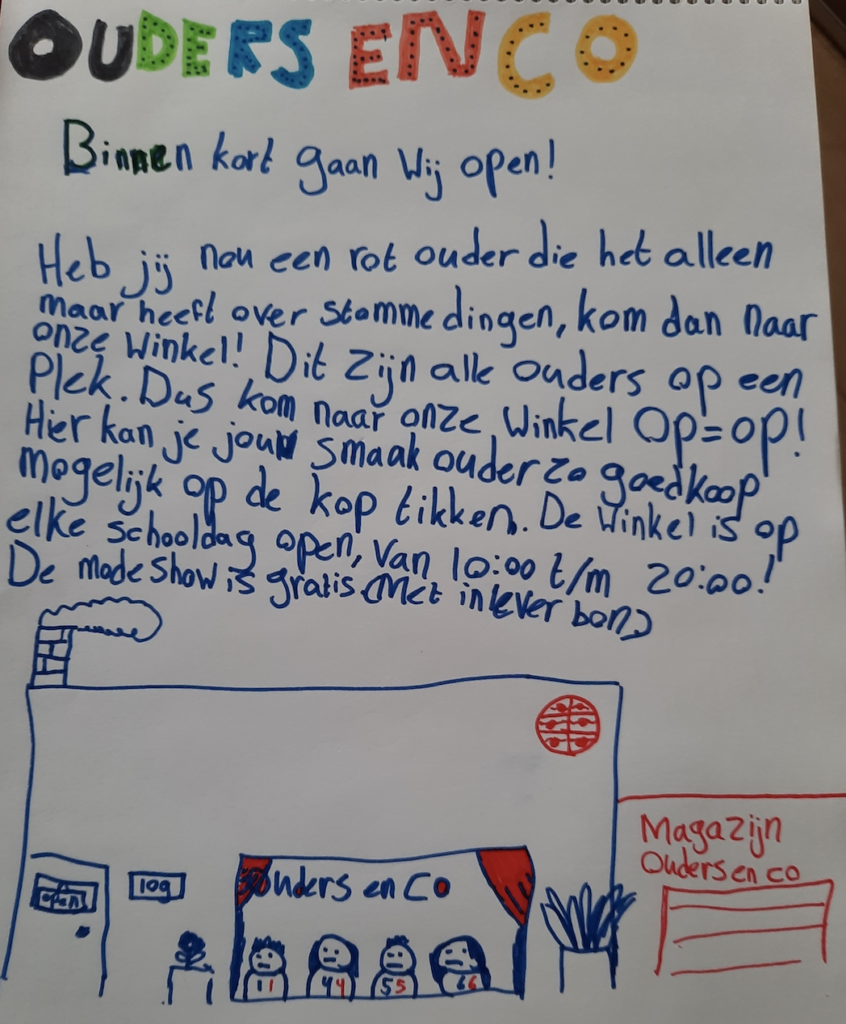 OUDERS EN CO
Binnen kort gaan Wij open!
Heb jij nou een rot ouder die het alleen
maar heeft over stomme dingen, kom dan naar
onze winkel! Dit zijn alle ouders op een
Plek. Dus kom naar onze winkel Op=op!
Hier kan je jouw smaak ouder zo goedkoop
mogelijk op de kop tikken. De winkel is op
elke schooldag open, van 10:00 t/m 20:00!
De mode show is gratis (Met inlever bon)
Ouders en Co
open!
109
11 44 55 66
Magazijn
Ouders en co